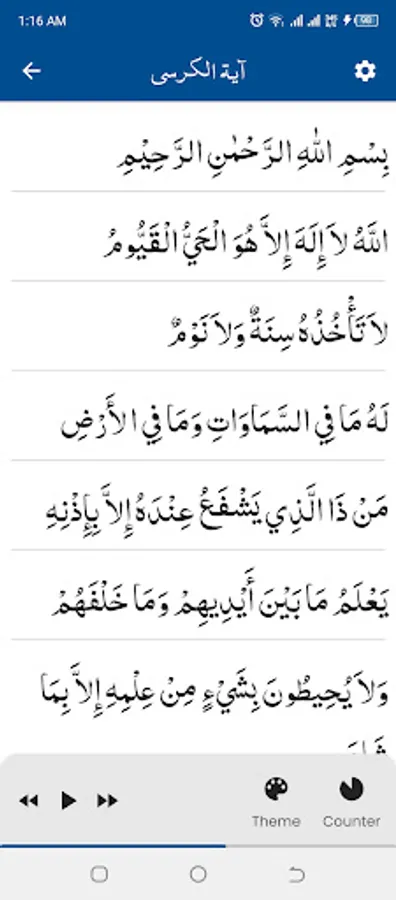 1:16 AM
آية الكرسى
بِسْمِ اللّٰهِ الرَّحْمٰنِ الرَّحِيْمِ
اللَّهُ لاَ إِلَهَ إِلاَّ هُوَ الْحَيُّ الْقَيُّومُ
لاَ تَأْخُذُهُ سِنَةٌ وَلاَ نَوْمٌ
لَهُ مَا فِي السَّمَاوَاتِ وَمَا فِي الأَرْضِ
مَنْ ذَا الَّذِي يَشْفَعُ عِنْدَهُ إِلاَّ بِإِذْنِهِ
يَعْلَمُ مَا بَيْنَ أَيْدِيهِمْ وَمَا خَلْفَهُمْ
وَلاَ يُحِيطُونَ بِشَيْءٍ مِنْ عِلْمِهِ إِلاَّ بِمَا
Theme Counter